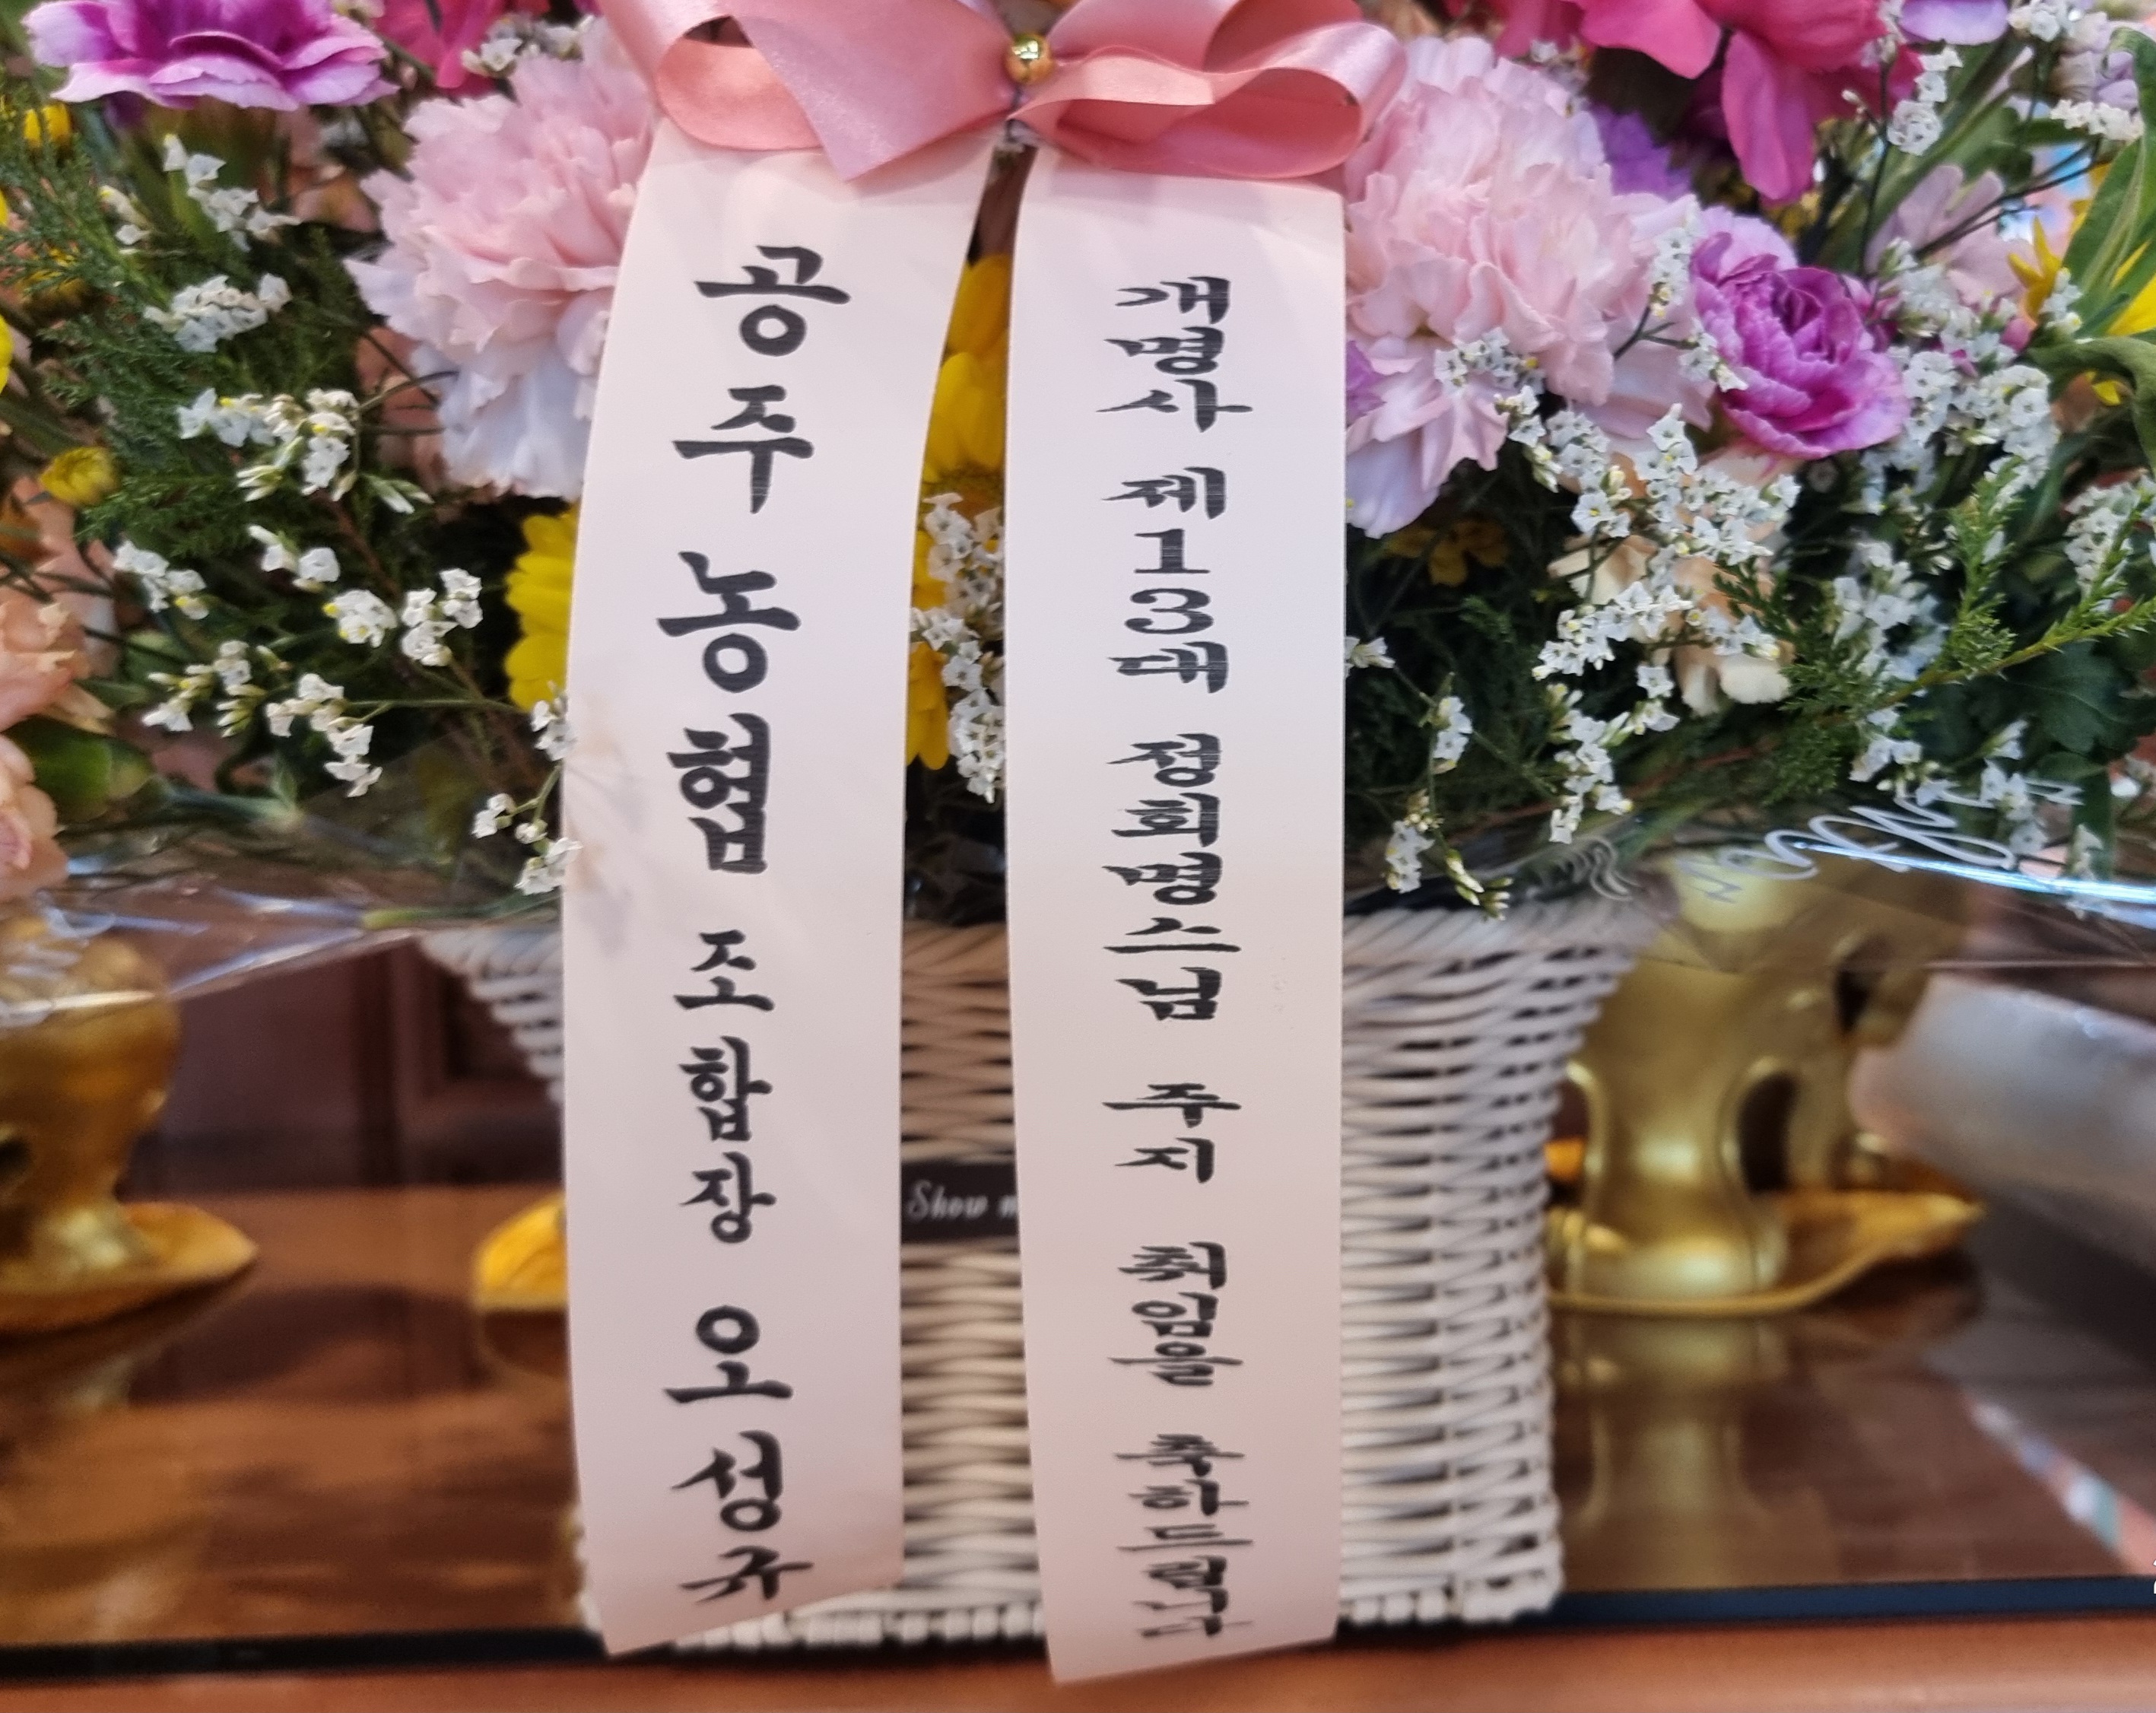 공주농협 조합장 오성규
개명사 제13대 정회명스님 주지 취임을 축하드립니다
Show